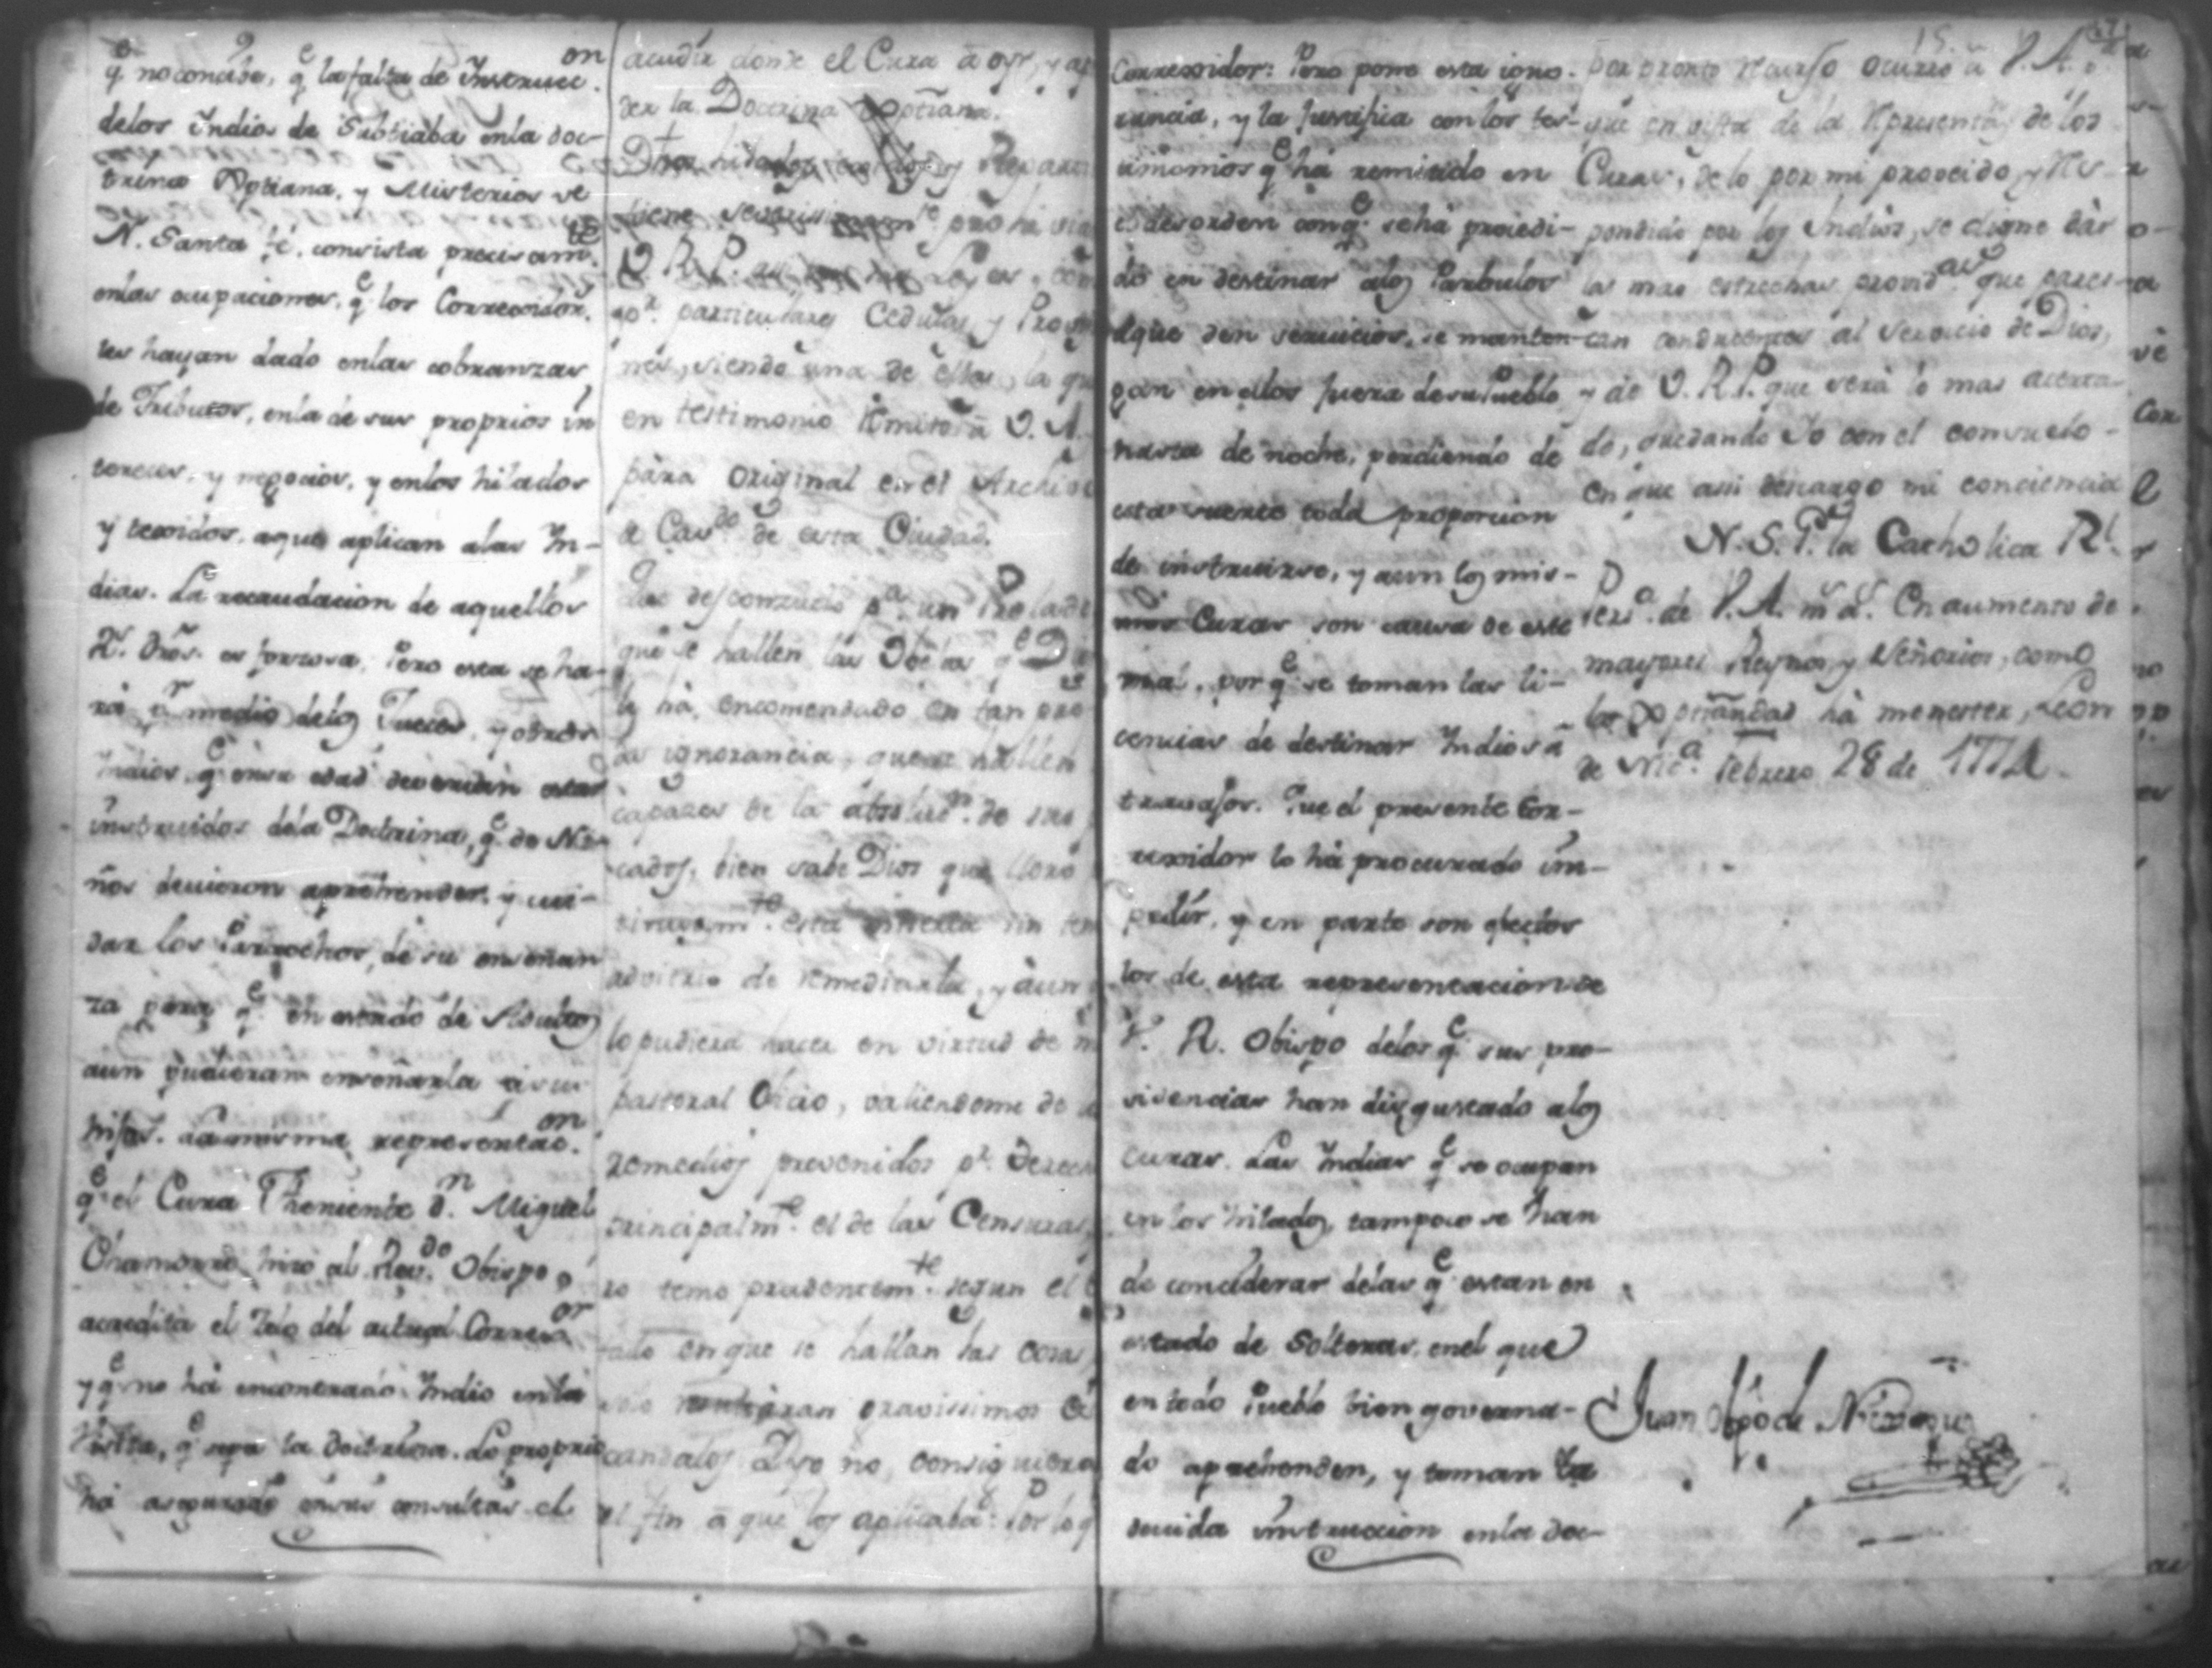 q.e no concibe, q.e la falta de Instrucc.on
delos Indios de Subtiaba enla doc-
trina Xptiana, y Misterios de
N. Santa fé, consista precisam.te
enlas ocupaciones, q.e los Corregidor.
les hayan dado enlas cobranzas
de Tributos, enla de sus proprios in
tereses, y negocios, y enlos hilados
y texidos, aque aplican alas In-
dias. La recaudacion de aquellos
R.s dros. es forzosa, Pero esta se ha-
rá p.r medio delos Jueces, y otros
Indios, q.e ensu edad deverian estar
instruidos dela Doctrina, q.e de Ni-
ños devieron aprehender, y cui-
dar los Parrochos, de su enseñan
za para q.e en estado de Adultos
aun pudieran enseñarla asus
hijos. La misma representac.on
q.e el Cura Theniente d.n Miguel
Chamorro hizo al Rev.do Obispo
acredita el zelo del actual Correg.or
y q.e no há encontrado Indio enla
Visita, q.e sepa la doctrina. Lo proprio
há asegurado ensus consultas el
acudir donde el Cura á oyr, y ap
der la Doctrina Xptiana.
Otros hilados
tiene
V. R. P. Leyes, com
po.r particulares Cedulas, y Provi
nes, siendo una de ellas, la que
en testimonio Remito á V. A.
para original en el Archivo
de Cav.do de esta Ciudad.
Que desconzuelo p.a un Prelado
que se hallen las Obejas q.e D
le há encomendado en tan pro
da ignorancia, que se hallen
capazes de la absoluc.n de sus
cados, bien sabe Dios que lloro
esta miseria sin ten
advitrio de remediarla, y aun
lo pudiera hacer en virtud de m
pastoral Oficio, valiendome de
remedios prevenidos p.r Derech
principalm.te el de las Censuras,
ro temo prudentem.te segun el e
tado en que se hallan las cosas
gravissimos Es
candalos Dño no, consiguiera
el fin á que los aplicaba: Por lo q
Corregidor: Pero pone esta igno-
rancia, y la justifica con los tes-
timonios q.e há remitido en
el desorden con q.e se há procedi-
do en destinar alos Parbulos
aque den servicios, se manten-
gan en ellos fuera de su Pueblo
hasta de noche, perdiendo de
esta suerte toda proporcion
de instruirse, y aun los mis-
mos Curas son causa de este
mal, por q.e se toman las li-
cencias de destinar Indios á
travajos. Que el presente Cor-
regidor lo há procurado im-
pedir, y en parte son efectos
los de esta representacion de
V. R. Obispo delos q.e sus pro-
videncias han disgustado alos
curas. Las Indias q.e se ocupan
en los hilados, tampoco se han
de conciderar delas q.e estan en
estado de Solteras, enel que
en todo Pueblo bien governa-
do aprehenden, y toman la
devida instruccion enla doc-
15.
por pronto recurso ocurro a V. A. p.a
que en vista de la Representa.n de los
Curas, de lo por mi proveido, y Res-
pondido por los Indios, se digne dár
las mas estrechas provid.as que parez-
can conducentes al Servicio de Dios,
y de V. R. P. que será lo mas acerta-
do, quedando Yo con el consuelo
en que assi descargo mi conciencia
N. S. G.e la Catholica R.l
Pers.a de V. A. m.s a.s En aumento de
mayores Reynos, y Señorios, como
la Xptiandad há menester, Leon
de Nic.a Febrero 28 de
Juan Obpo de Nicarag.a